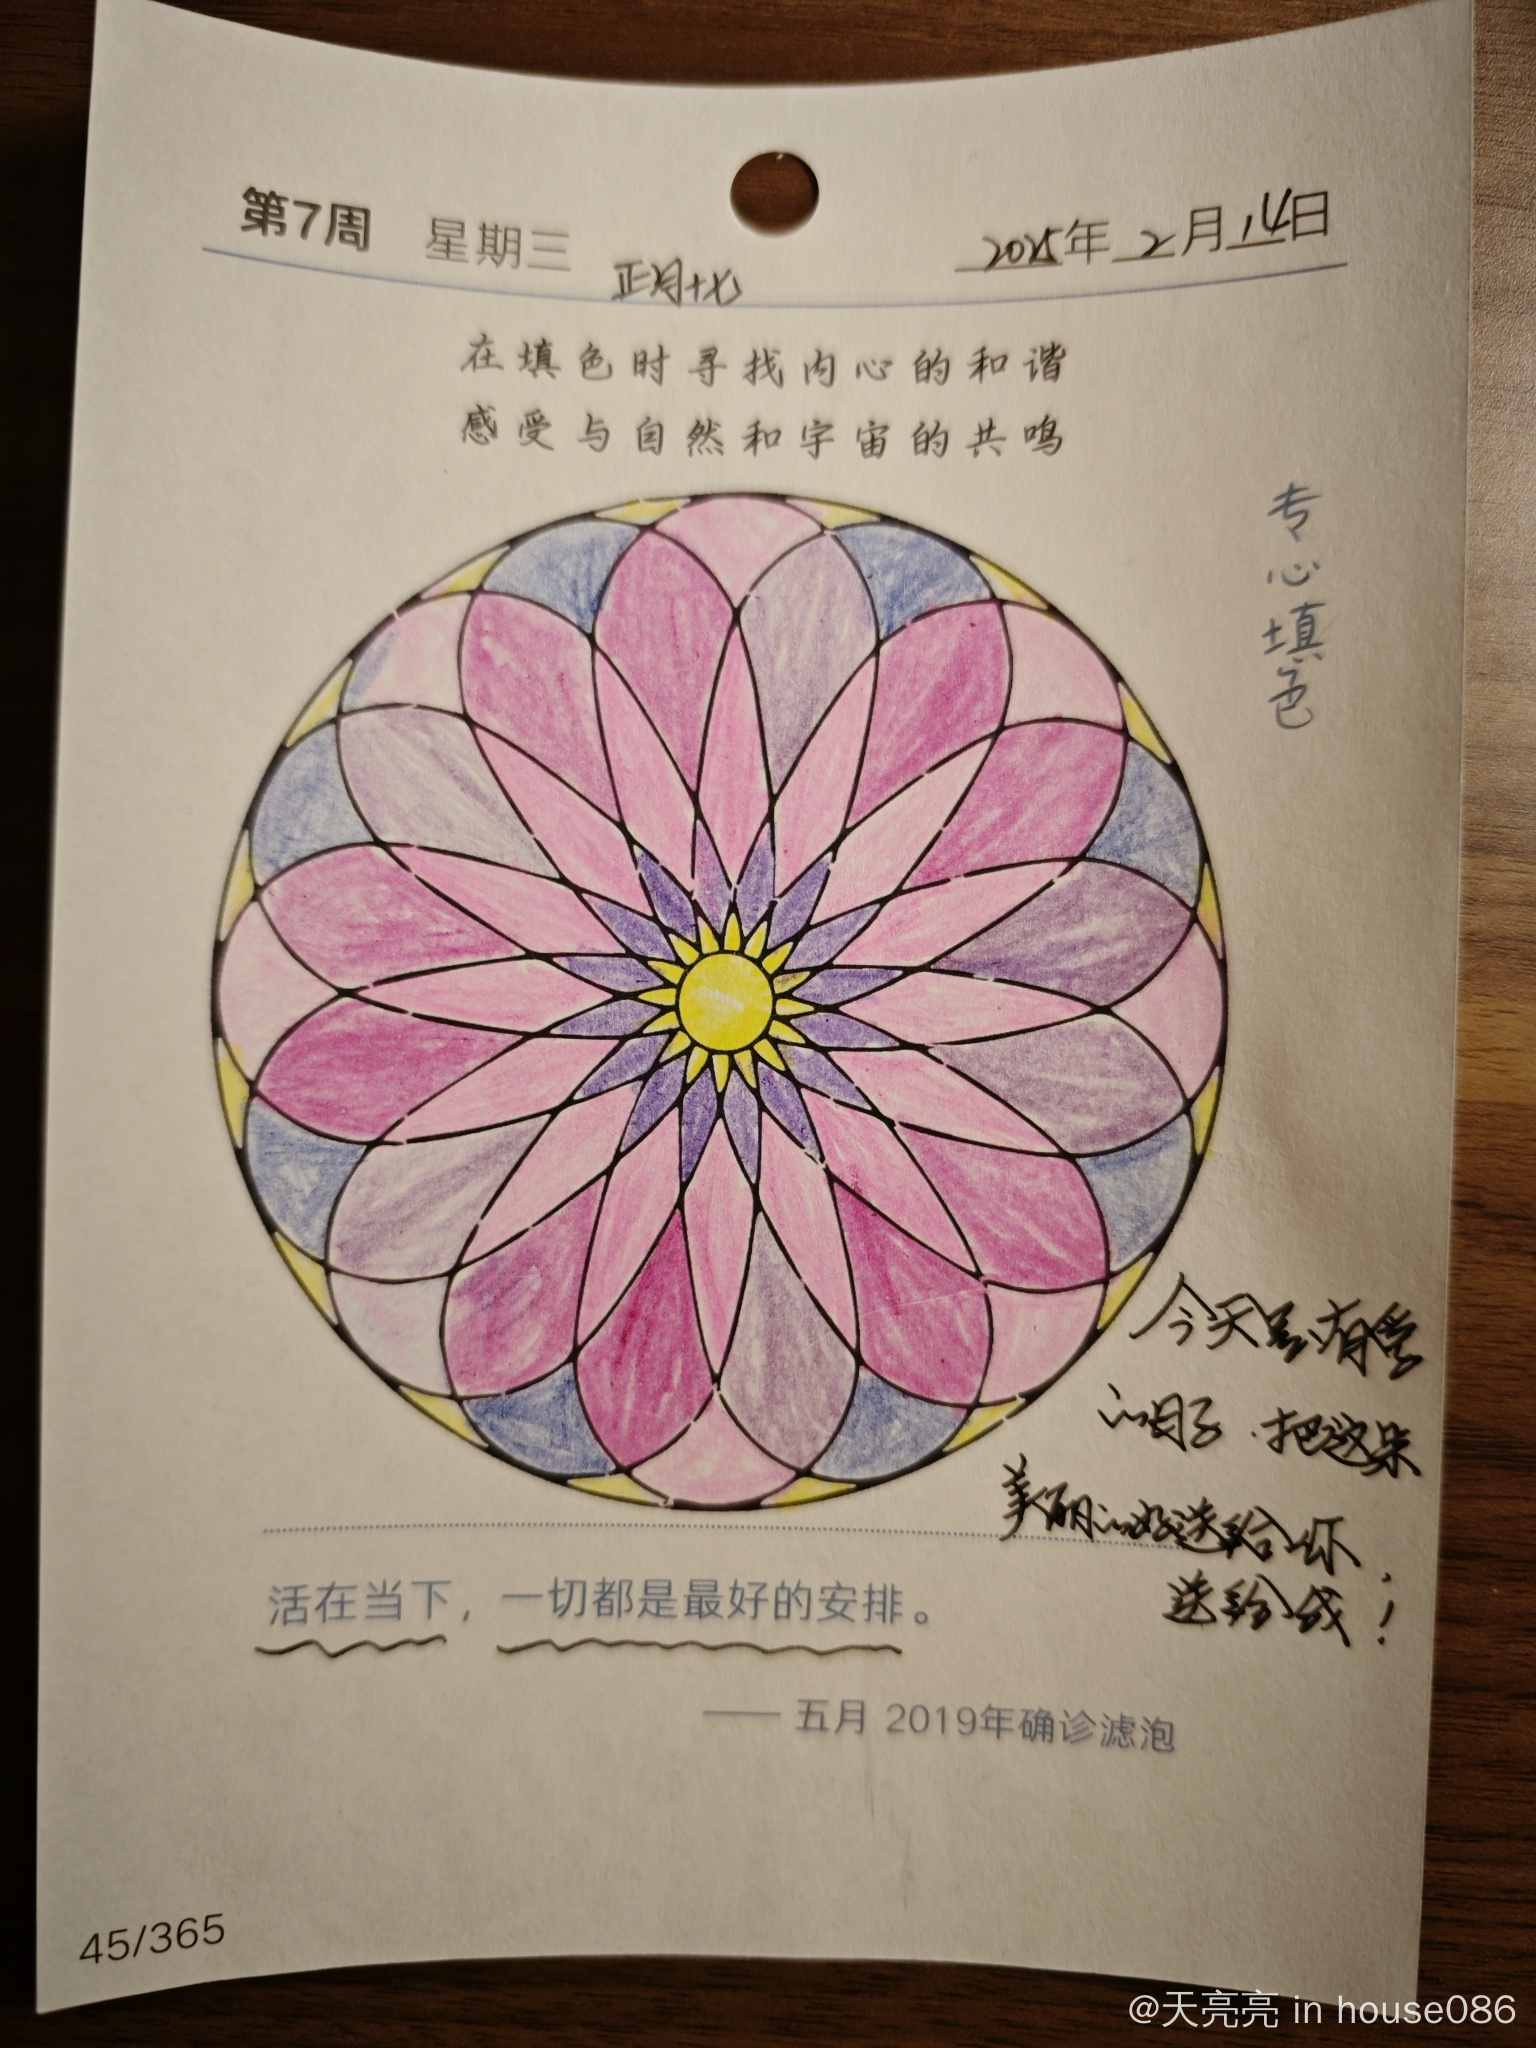 第7周 星期三 2025年2月14日
正月十七
在填色时寻找内心的和谐
感受与自然和宇宙的共鸣
专心填色
今天是有爱
的日子.把这朵
美丽的花送给你,
送给我!
活在当下，一切都是最好的安排。
—— 五月 2019年确诊滤泡
45/365
@天亮亮 in house086